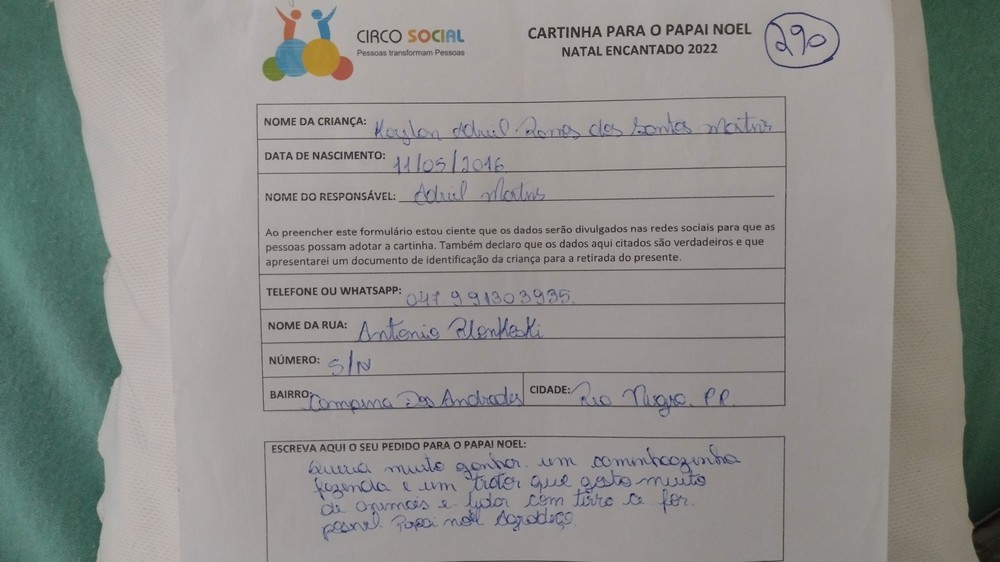 CIRCO SOCIAL
Pessoas transformam Pessoas
CARTINHA PARA O PAPAI NOEL
NATAL ENCANTADO 2022
290
NOME DA CRIANÇA: Kaylon Adriel Ramos dos Santos Martins
DATA DE NASCIMENTO: 11/05/2016
NOME DO RESPONSÁVEL: Adriel Martins
Ao preencher este formulário estou ciente que os dados serão divulgados nas redes sociais para que as
pessoas possam adotar a cartinha. Também declaro que os dados aqui citados são verdadeiros e que
apresentarei um documento de identificação da criança para a retirada do presente.
TELEFONE OU WHATSAPP: 047 991303935
NOME DA RUA: Antonio
NÚMERO: S/N
BAIRRO: Campina Dos Andrades CIDADE: Rio Negro. PR.
ESCREVA AQUI O SEU PEDIDO PARA O PAPAI NOEL:
Queria muito ganhar um caminhaozinho
fazenda e um trator que gosto muito
de animais e lidar com tirra ce for
Papai noel Agradeço